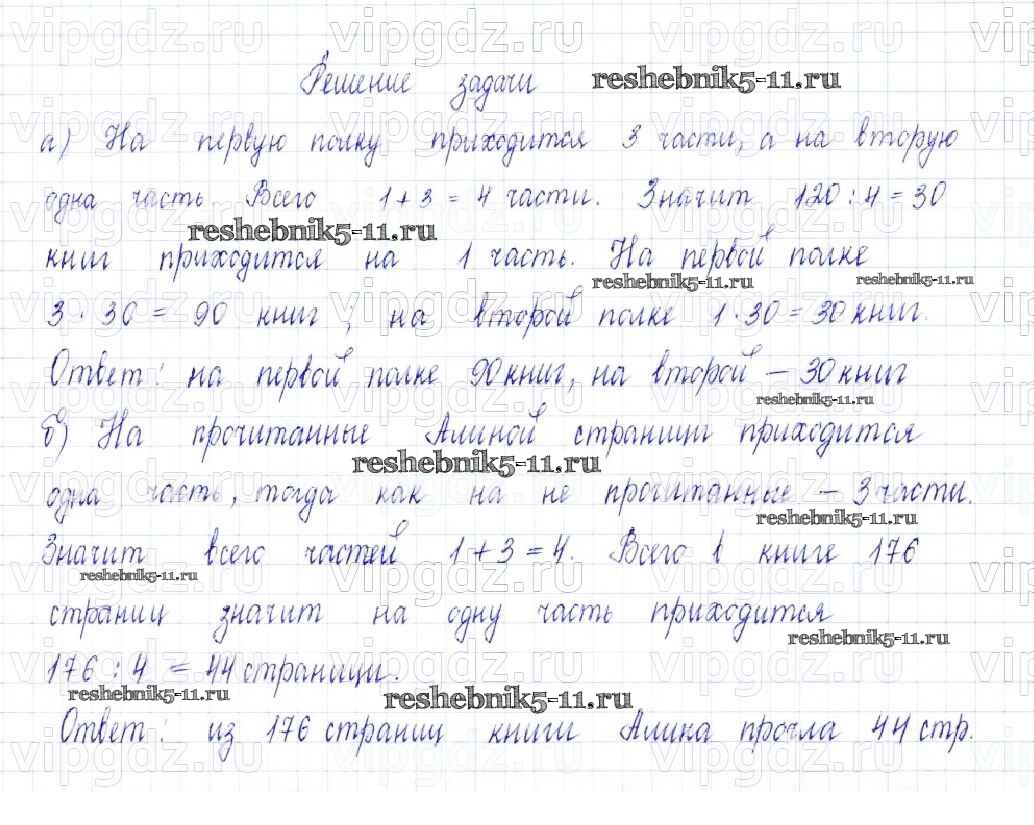 Решение задачи reshebnik5-11.ru
а) На первую полку приходится 3 части, а на вторую
одна часть. Всего 1 + 3 = 4 части. Значит 120 : 4 = 30
reshebnik5-11.ru
книг приходится на 1 часть. На первой полке
reshebnik5-11.ru reshebnik5-11.ru
3 · 30 = 90 книг, на второй полке 1 · 30 = 30 книг.
Ответ: на первой полке 90 книг, на второй – 30 книг
reshebnik5-11.ru
б) На прочитанные Алиной страницы приходится
reshebnik5-11.ru
одна часть, тогда как на не прочитанные – 3 части.
reshebnik5-11.ru
Значит всего частей 1 + 3 = 4. Всего в книге 176
reshebnik5-11.ru
страниц значит на одну часть приходится
reshebnik5-11.ru
176 : 4 = 44 страницы.
reshebnik5-11.ru reshebnik5-11.ru
Ответ: из 176 страниц книги Алина прочла 44 стр.
vipgdz.ru